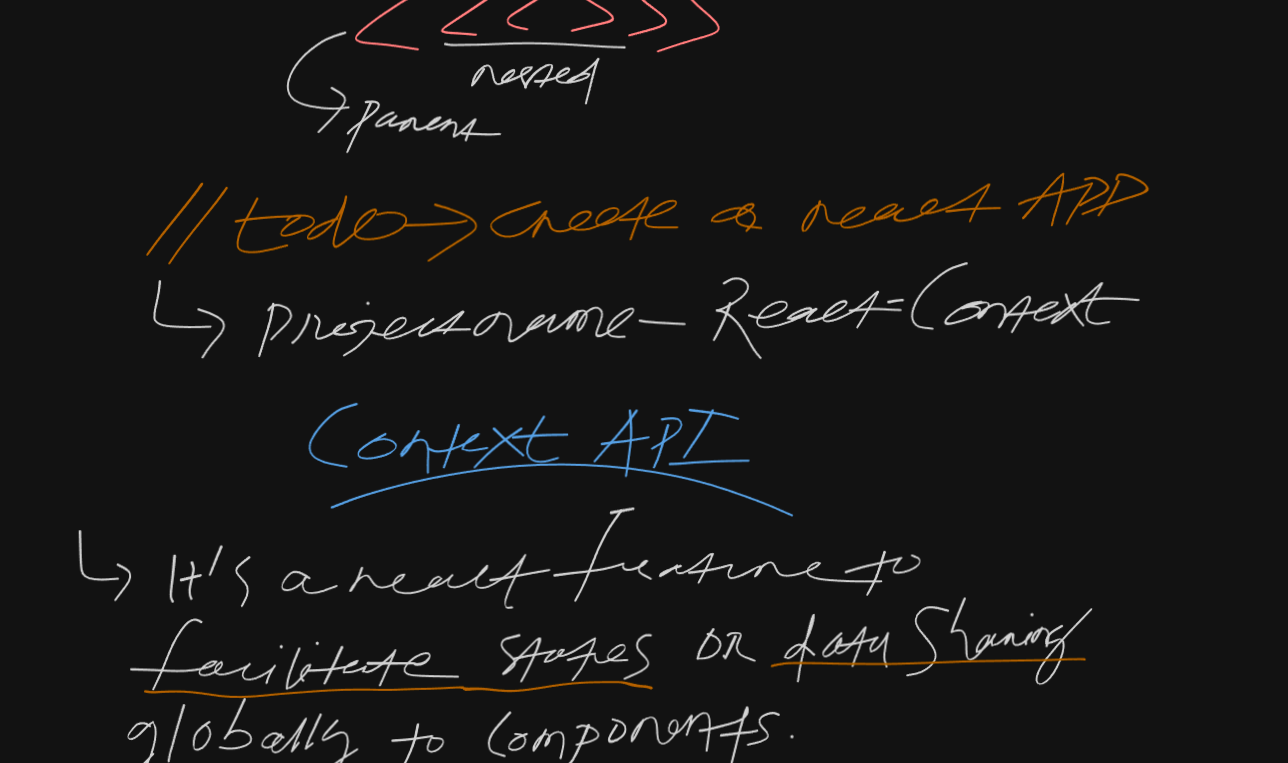 nested
Parent
// todo → create a react APP
↳ Project name - React-Context
Context API
↳ It's a react feature to
facilitate states OR data sharing
globally to components.